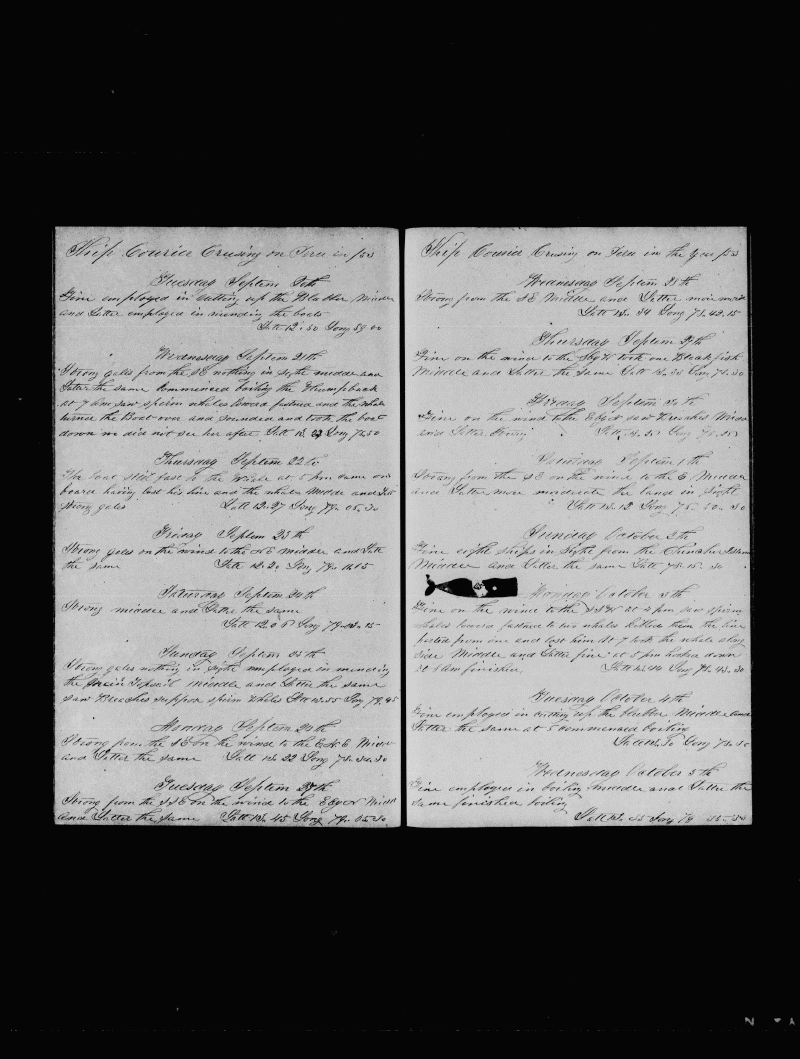 Ship Courier Crusing on Peru in 1853
Tuesday Septem 20th
Fine employed in Cutting up the Blubber Middle
and Latter employed in mending the boats
Latt 12.50 Long 59.00
Wednesday Septem 21th
Strong gales from the SE nothing in Sight middle and
Latter the same Commenced boiling the Humpback
at 7 Am saw sperm whales lowerd fastned and the whale
turned the Boat over and sounded and took the boat
down we did not see her after Latt 12.23 Long 78.50
Thursday Septem 22th
The boat still fast to the Whale at 5 pm came on
board having lost his line and the whale Middle and Latt
strong gales Latt 12.27 Long 79.05.30
Friday Septem 23th
Strong gales on the wind to the NE middle and Latt
the same Latt 12.2 Long 79.11.15
Saturday Septem 24th
Strong middle and Latter the same
Latt 12.06 Long 79. 15
Sunday Septem 25th
Strong gales nothing in Sight employed in mending
the main Topsail middle and Latter the same
saw Breaches suppose sperm Whales Latt 12.55 Long 78.45
Monday Septem 26th
Strong from the SE on the wind to the ENE Middle
and Latter the same Latt 12.22 Long 78.30.30
Tuesday Septem 27th
Strong from the SSE on the wind to the Middle
and Latter the same Latt 12.45 Long 79.05.30
Ship Courier Crusing on Peru in the Year 1853
Wednesday Septem 28th
Strong from the SE Middle and Latter more
Latt 12.34 Long 78.42.15
Thursday Septem 29th
Fine on the wind to the took one Blackfish
Middle and Latter the same Latt 12.35 Long 78.30
Friday Septem 30th
Fine on the wind to the saw Breaches Middle
and Latter Strong Latt Long
Saturday Septem 1th
Strong from the SE on the wind to the E Middle
and Latter more moderate the land in Sight
Latt 12.12 Long 78.50.30
Sunday October 2th
Fine eight ships in Sight from the Chincha Islands
Middle and Latter the same Latt 78.15.30
Monday October 3th
Fine on the wind to the SSW at 4 pm saw sperm
whales lowerd fastned to two whales killed them the line
parted from one and lost him At 7 took the whale along
side Middle and Latter fine at 5 pm hooked down
at 8 Am finished Latt 12.44 Long 78.43.30
Tuesday October 4th
Fine employed in cutting up the blubber Middle and
Latter the same at 5 commenced boiling
Latt 12.30 Long 78.30
Wednesday October 5th
Fine employed in boiling middle and Latter the
same finished boiling
Latt 12.25 Long 78 35.30